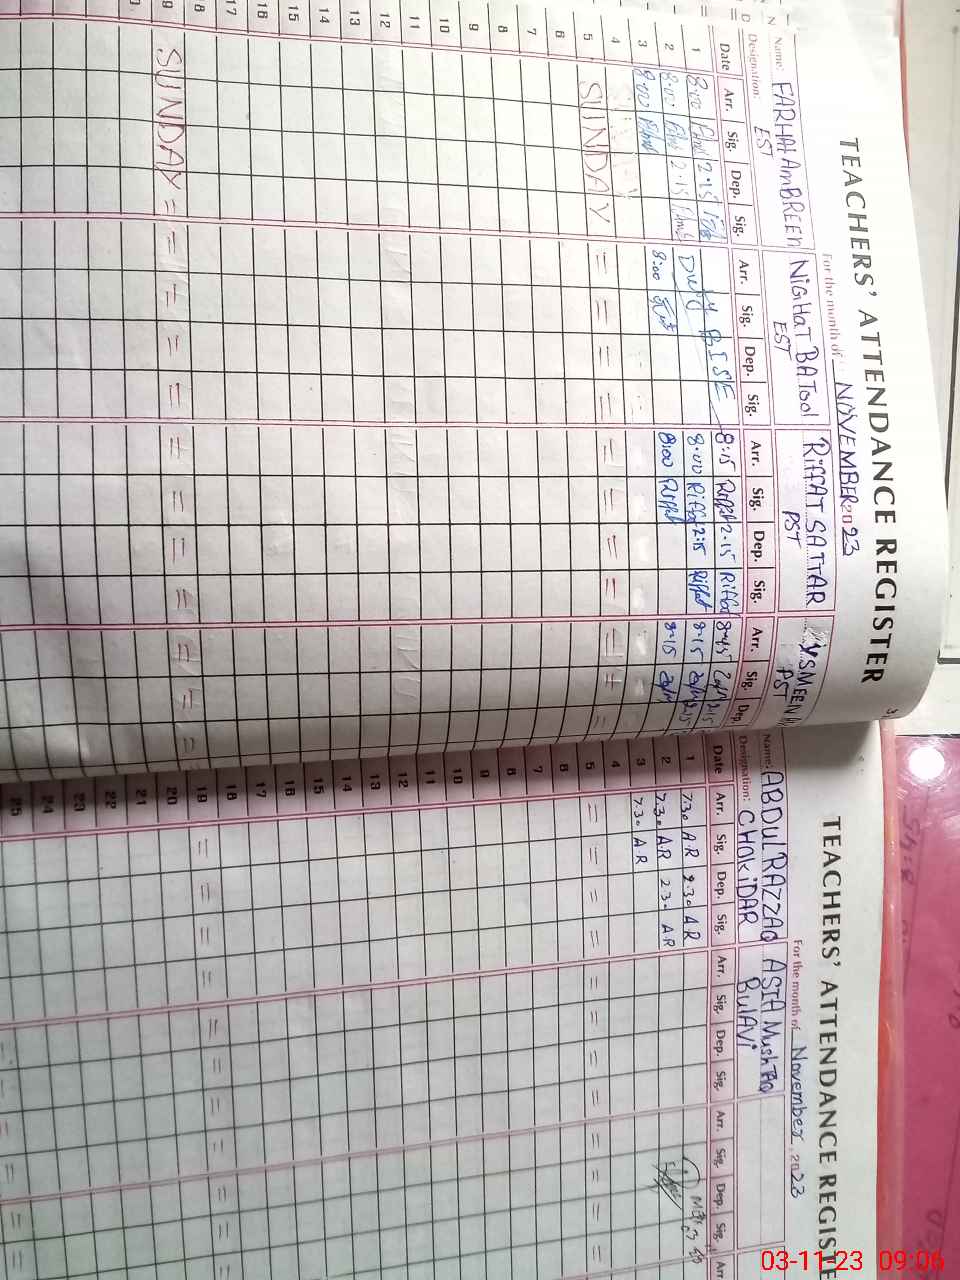 TEACHERS' ATTENDANCE REGISTER
For the month of NOVEMBER 2023
Name: FARHAT AMBREEN NIGHAT BATOOL RIFFAT SATTAR YASMEEN
Designation: EST EST PST PST
Date Arr. Sig. Dep. Sig. Arr. Sig. Dep. Sig. Arr. Sig. Dep. Sig. Arr. Sig. Dep.
1 8:00 2:15 Duty BISE 8:15 Riffat 2:15 Riffat 8:45 2:15
2 8:00 2:15 8:00 Riffat 2:15 Riffat 8:15 2:15
3 8:00 8:00 8:00 Riffat 8:15
4
5 SUNDAY = = = = = = = = =
6
7
8
9
10
11
12
13
14
15
16
17
18
19 SUNDAY = = = = = = = = = = =
TEACHERS' ATTENDANCE REGISTE
For the month of November 2023
Name: ABDUL RAZZAQ ASIA MUSHTAQ
Designation: CHOKIDAR BULAVI
Date Arr. Sig. Dep. Sig. Arr. Sig. Dep. Sig. Arr. Sig. Dep. Sig. Arr
1 7.30 A.R 2.30 A.R
2 7.30 A.R 2.30 A.R
3 7.30 A.R
4
5 = = = = = = = = = = =
6
7
8
9
10
11
12
13
14
15
16
17
18
19 = = = = = = = = = =
20
21
22
23
24
25
03-11-23 09:06